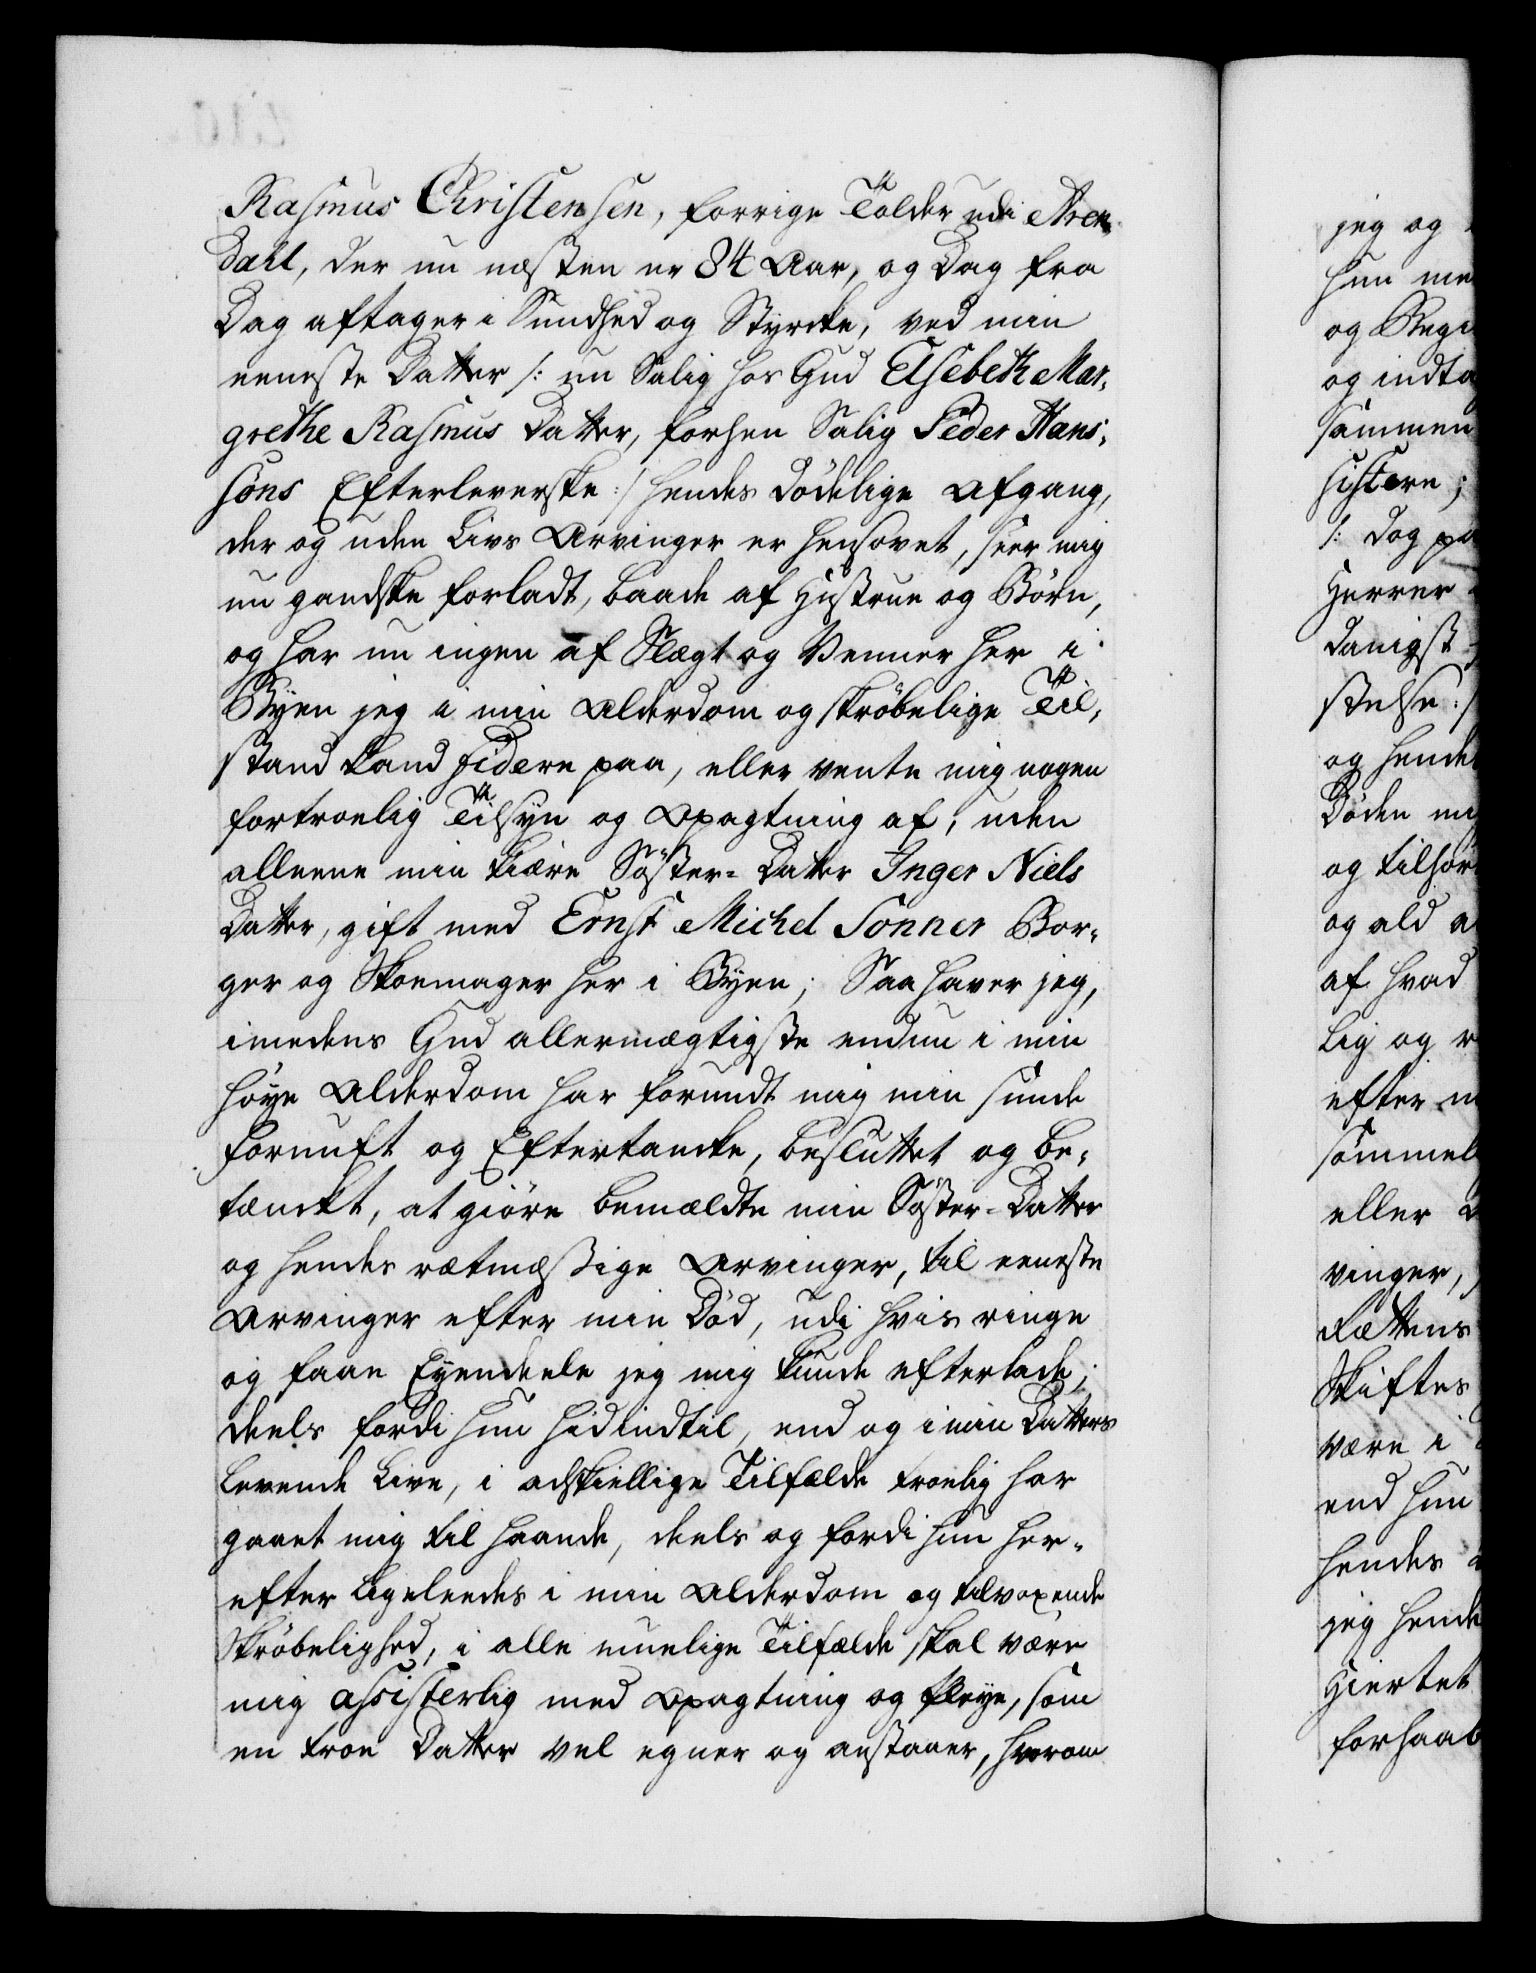 Rasmus Christensen, forrige Tolder udi Aren-
dahl, der nu næsten er 84 Aar, og Dag fra
Dag aftager i Sundhed og Styrcke, ved min
eeneste Datter /: nu Salig hos Gud Elsebeth Mar-
grethe Rasmus Datter, forhen Salig Peder Hans-
söns Efterleverske :/ hendes dödelige Afgang,
der og uden Livs Arvinger er hensovet, seer mig
nu gandske forladt, baade af Hustrue og Börn,
og har nu ingen af Slægt og Venner her i
Byen jeg i min Alderdom og skröbelige Til-
stand kand fidere paa, eller vente mig nogen
fortroelig Tilsyn og Opagtning af, uden
alleene min kiære Söster-Datter Inger Niels
Datter, gift med Ernst Michel Sonner Bor-
ger og Skoemager her i Byen; Saa haver jeg,
imedens Gud allermægtigste endnu i min
höye Alderdom har forundt mig min sunde
Fornuft og Eftertancke, besluttet og be-
tænckt, at giöre bemældte min Söster-Datter
og hendes rætmæssige Arvinger, til eeneste
Arvinger efter min Död, udi hvis ringe
og faae Eyendeele jeg mig kunde efterlade;
deels fordi hun hidindtil, end og i min Datters
levende Live, i adskiellige Tilfælde troelig har
gaaet mig til haande, deels og fordi hun her-
efter ligeleedes i min Alderdom og tilvoxende
Skröbelighed, i alle muelige Tilfælde skal være
mig assisterlig med Opagtning og Pleye, som
en troe Datter vel egner og anstaaer, hvorom
jeg og
hun me
og Begi
og indta
sammen
sistere;
/: dog pa
Herrer
danigst
stelse :/
og hendes
Döden mi
og tilhör
og ald a
af hvad
lig og r
efter m
sömmel
eller
vinger,
Rættens
Skiftes
være i
end hun
hendes
jeg hende
Hiertet
forhaab